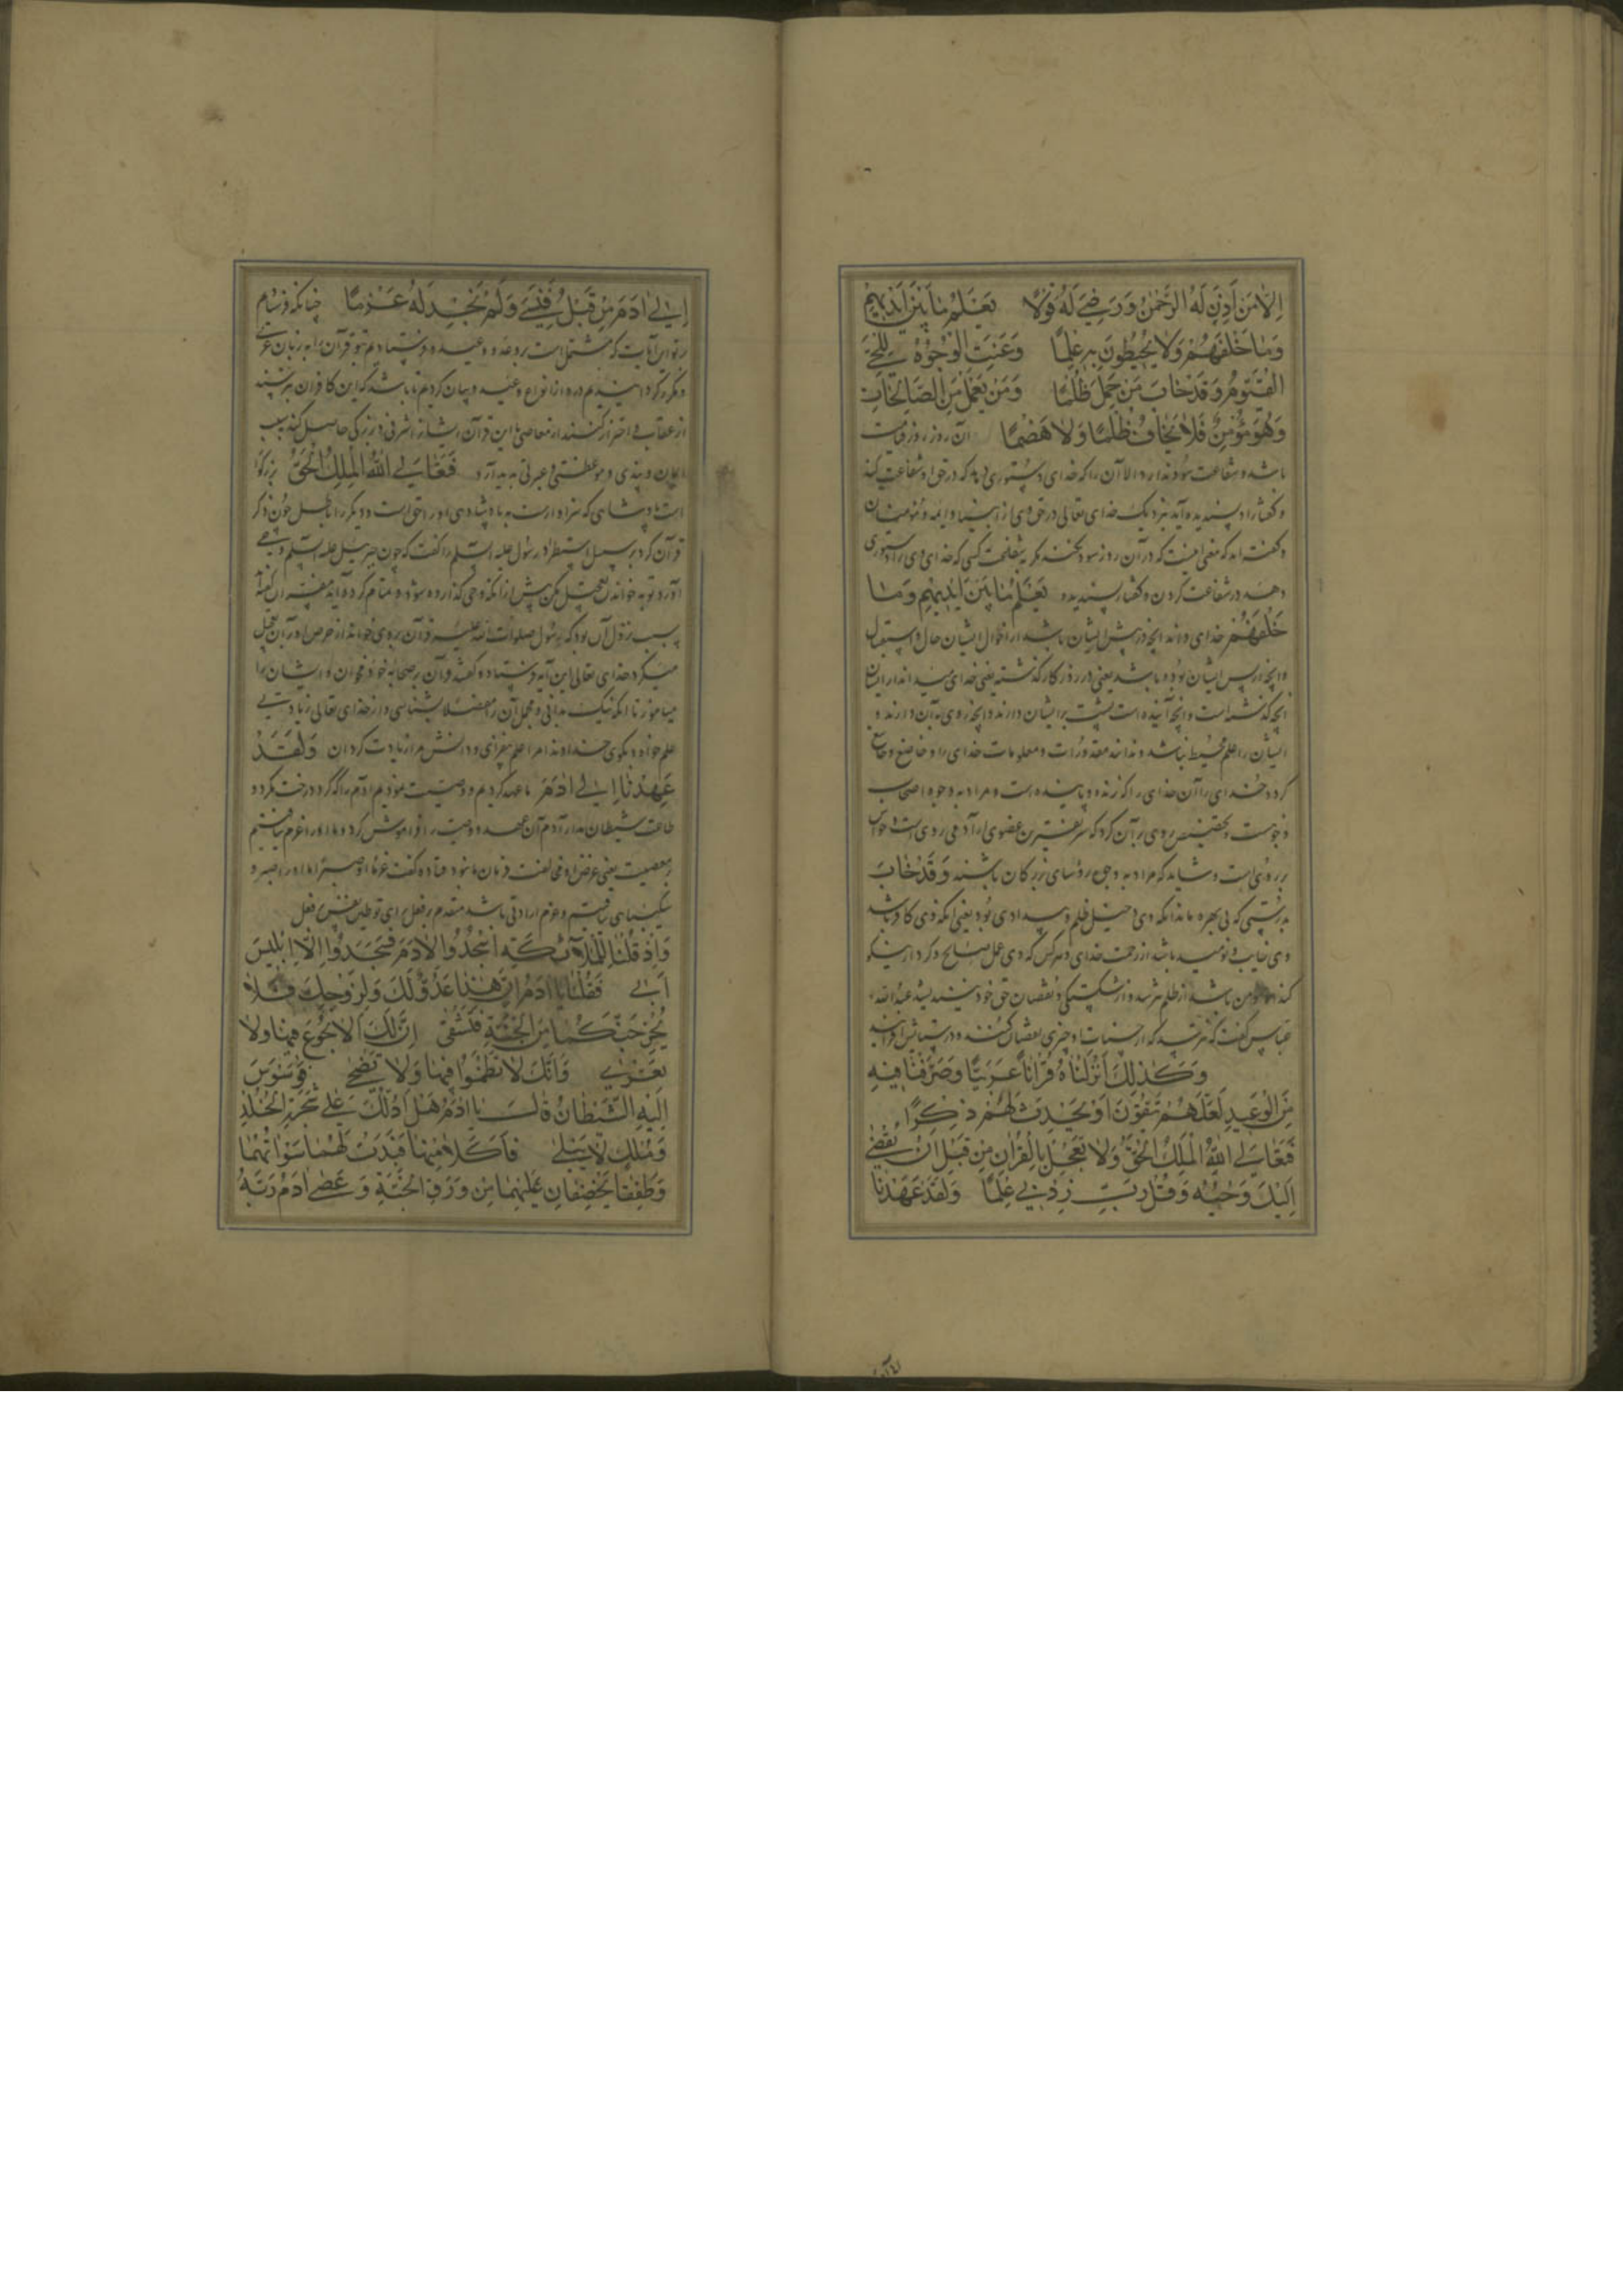 اِلّا مَن اَذِنَ لَهُ الرَّحْمٰنُ وَرَضِيَ لَهُ قَوْلًا يَعْلَمُ مَا بَيْنَ اَيْدِيهِمْ
وَمَا خَلْفَهُمْ وَلَا يُحِيطُونَ بِهِ عِلْمًا وَعَنَتِ الْوُجُوهُ لِلْحَيِّ
الْقَيُّومِ وَقَدْ خَابَ مَنْ حَمَلَ ظُلْمًا وَمَنْ يَعْمَلْ مِنَ الصَّالِحَاتِ
وَهُوَ مُؤْمِنٌ فَلَا يَخَافُ ظُلْمًا وَلَا هَضْمًا آن روز روز قیامت
باشد و شفاعت سود ندارد الا آن را که خدای دستوری دهد که در حق او شفاعت کنند
و گفتار او پسندیده آید نزدیک خدای تعالی در حق وی از انبیا و ائمه و مؤمنان
و گفته‌اند که معنی آنست که در آن روز سود نکند مگر شفاعت کسی که خدای وی را دستوری
دهد در شفاعت کردن و گفتار پسندیده يَعْلَمُ مَا بَيْنَ اَيْدِيهِمْ وَمَا
خَلْفَهُمْ خدای داند آنچه در پیش ایشان باشد از احوال ایشان حال و استقبال
و آنچه از پس ایشان بود و باشد یعنی در روزگار گذشته یعنی خدای میداند از ایشان
آنچه گذشته است و آنچه آینده است پشت بر ایشان دارند و آنچه روی به آن دارند و
ایشان را علم محیط نباشد و ندانند مقدورات و معلومات خدای را و خاضع و خاشع
گردد خدای را آن خدای را که زنده و پاینده است و مراد به وجوه اصحاب
وجوهست و تخصیص روی بر آن کرد که شریفترین عضوی از آدمی روی است و حواس
بر روی است و شاید که مراد به وجوه رؤسای بزرگان باشند وَقَدْ خَابَ
بدرستی که بی بهره ماند آنکه وی احتمل ظلم و بیدادی بود یعنی آنکه وی کافر باشد
وی خایب و نومید باشد از رحمت خدای و هرکس که وی عمل صالح و کردار نیکو
کند و مؤمن باشد از ظلم نترسد و از شکستگی و نقصان حق خود نیندیشد عبد الله
عباس گفت که نترسد که از حسنات او چیزی نقصان کنند و در سیئاتش افزایند
وَكَذٰلِكَ اَنْزَلْنَاهُ قُرْاٰنًا عَرَبِيًّا وَصَرَّفْنَا فِيهِ
مِنَ الْوَعِيدِ لَعَلَّهُمْ يَتَّقُونَ اَوْ يُحْدِثُ لَهُمْ ذِكْرًا
فَتَعَالَى اللّٰهُ الْمَلِكُ الْحَقُّ وَلَا تَعْجَلْ بِالْقُرْاٰنِ مِنْ قَبْلِ اَنْ يُقْضٰى
اِلَيْكَ وَحْيُهُ وَقُلْ رَبِّ زِدْنِي عِلْمًا وَلَقَدْ عَهِدْنَا
اِلٰى اٰدَمَ مِنْ قَبْلُ فَنَسِيَ وَلَمْ نَجِدْ لَهُ عَزْمًا چنانکه فرستادم
بر تو این آیات که مشتمل است بر وعد و وعید و فرستادیم بتو قرآن را به زبان عربی
و مکرر گردانیدیم در او از انواع وعید و بیان کردیم تا باشد که این کافران بترسند
از عقاب و احتراز کنند از معاصی یا این قرآن ایشان را شرفی و بزرگی حاصل کند بسبب
ایمان و پندی و موعظتی و عبرتی پدید آرد فَتَعَالَى اللّٰهُ الْمَلِكُ الْحَقُّ بزرگوار
است پادشاهی که سزاوارست به پادشاهی او را حق است و دیگر را باطل چون ذکر
قرآن کرد بر سبیل استطراد رسول علیه السلم را گفت که چون جبرئیل علیه السلم وحی
آورد تو به خواندن تعجیل مکن پیش از آنکه وحی گذارده شود و تمام کرده آید مفسران گفتند
سبب نزول آن بود که رسول صلوات الله علیه قرآن بر وی خواند از حرص او در آن تعجیل
میکرد خدای تعالی این آیه فرستاد و گفت قرآن بر صحابه خود مخوان و ایشان را
میاموز تا آنکه نیک بدانی و مجمل آن را مفصلا بشناسی و از خدای تعالی زیادتی
علم خواه و بگوی خداوندا مرا علم بیفزای و دانش مرا زیادت گردان وَلَقَدْ
عَهِدْنَا اِلٰى اٰدَمَ ما عهد کردیم و وصیت نمودیم آدم را که گرد درخت مگرد و
طاعت شیطان مدار آدم آن عهد و وصیت را فراموش کرد و ما او را عزم نیافتیم
بر معصیت یعنی غرض او مخالفت فرمان ما نبود قتاده گفت عزما ای صبرا ما او را صبر و
شکیبایی نیافتیم و عزم ارادتی باشد متقدم بر فعل برای توطین نفس بر فعل
وَاِذْ قُلْنَا لِلْمَلٰٓئِكَةِ اسْجُدُوا لِاٰدَمَ فَسَجَدُوا اِلَّا اِبْلِيسَ
اَبٰى فَقُلْنَا يَا اٰدَمُ اِنَّ هٰذَا عَدُوٌّ لَكَ وَلِزَوْجِكَ فَلَا
يُخْرِجَنَّكُمَا مِنَ الْجَنَّةِ فَتَشْقٰى اِنَّ لَكَ اَلَّا تَجُوعَ فِيهَا وَلَا
تَعْرٰى وَاَنَّكَ لَا تَظْمَؤُا فِيهَا وَلَا تَضْحٰى فَوَسْوَسَ
اِلَيْهِ الشَّيْطَانُ قَالَ يَا اٰدَمُ هَلْ اَدُلُّكَ عَلٰى شَجَرَةِ الْخُلْدِ
وَمُلْكٍ لَا يَبْلٰى فَاَكَلَا مِنْهَا فَبَدَتْ لَهُمَا سَوْاٰتُهُمَا
وَطَفِقَا يَخْصِفَانِ عَلَيْهِمَا مِنْ وَرَقِ الْجَنَّةِ وَعَصٰى اٰدَمُ رَبَّهُ